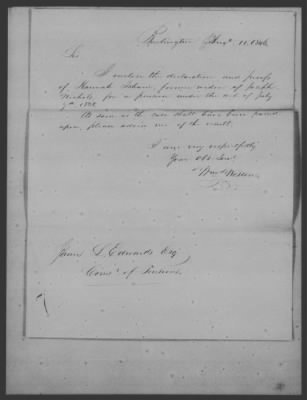 Burlington Augt. 11. 1846
Sir
I enclose the declaration and proofs
of Hannah Isham, former widow of Joseph
Nichols, for a pension under the act of July
7th 1838.
As soon as the case shall have been passed
upon, please advise me of the result.
I am very respectfully
Your Obt. Servt.
Wm. Weston
James L Edwards Esq
Comr. of Pensions